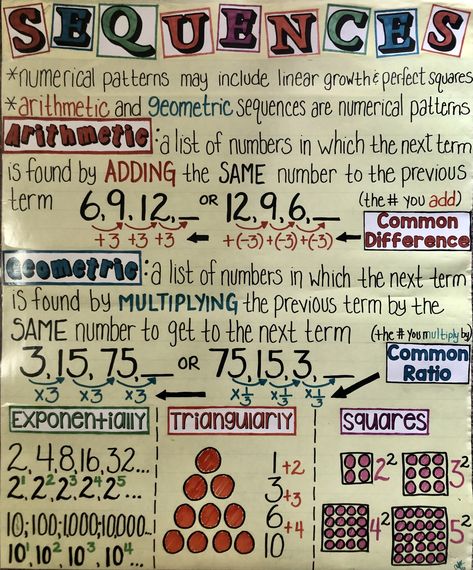 SEQUENCES
*numerical patterns may include linear growth & perfect squares
*arithmetic and geometric sequences are numerical patterns
Arithmetic: a list of numbers in which the next term
is found by ADDING the SAME number to the previous
term 6,9,12,_ OR 12,9,6,_ (the # you add)
+3 +3 +3 +(-3) +(-3) +(-3) Common
Difference
Geometric: a list of numbers in which the next term
is found by MULTIPLYING the previous term by the
SAME number to get to the next term (the # you multiply by)
3,15,75,_ OR 75,15,3,_ Common
Ratio
x3 x3 x3 x1/3 x1/3 x1/3
Exponentially
2,4,8,16,32...
2¹,2²,2³,2⁴,2⁵
10;100;1,000;10,000...
10¹,10²,10³,10⁴
Triangularly
1 +2
3 +3
6 +4
10
Squares
2² 3²
4² 5²